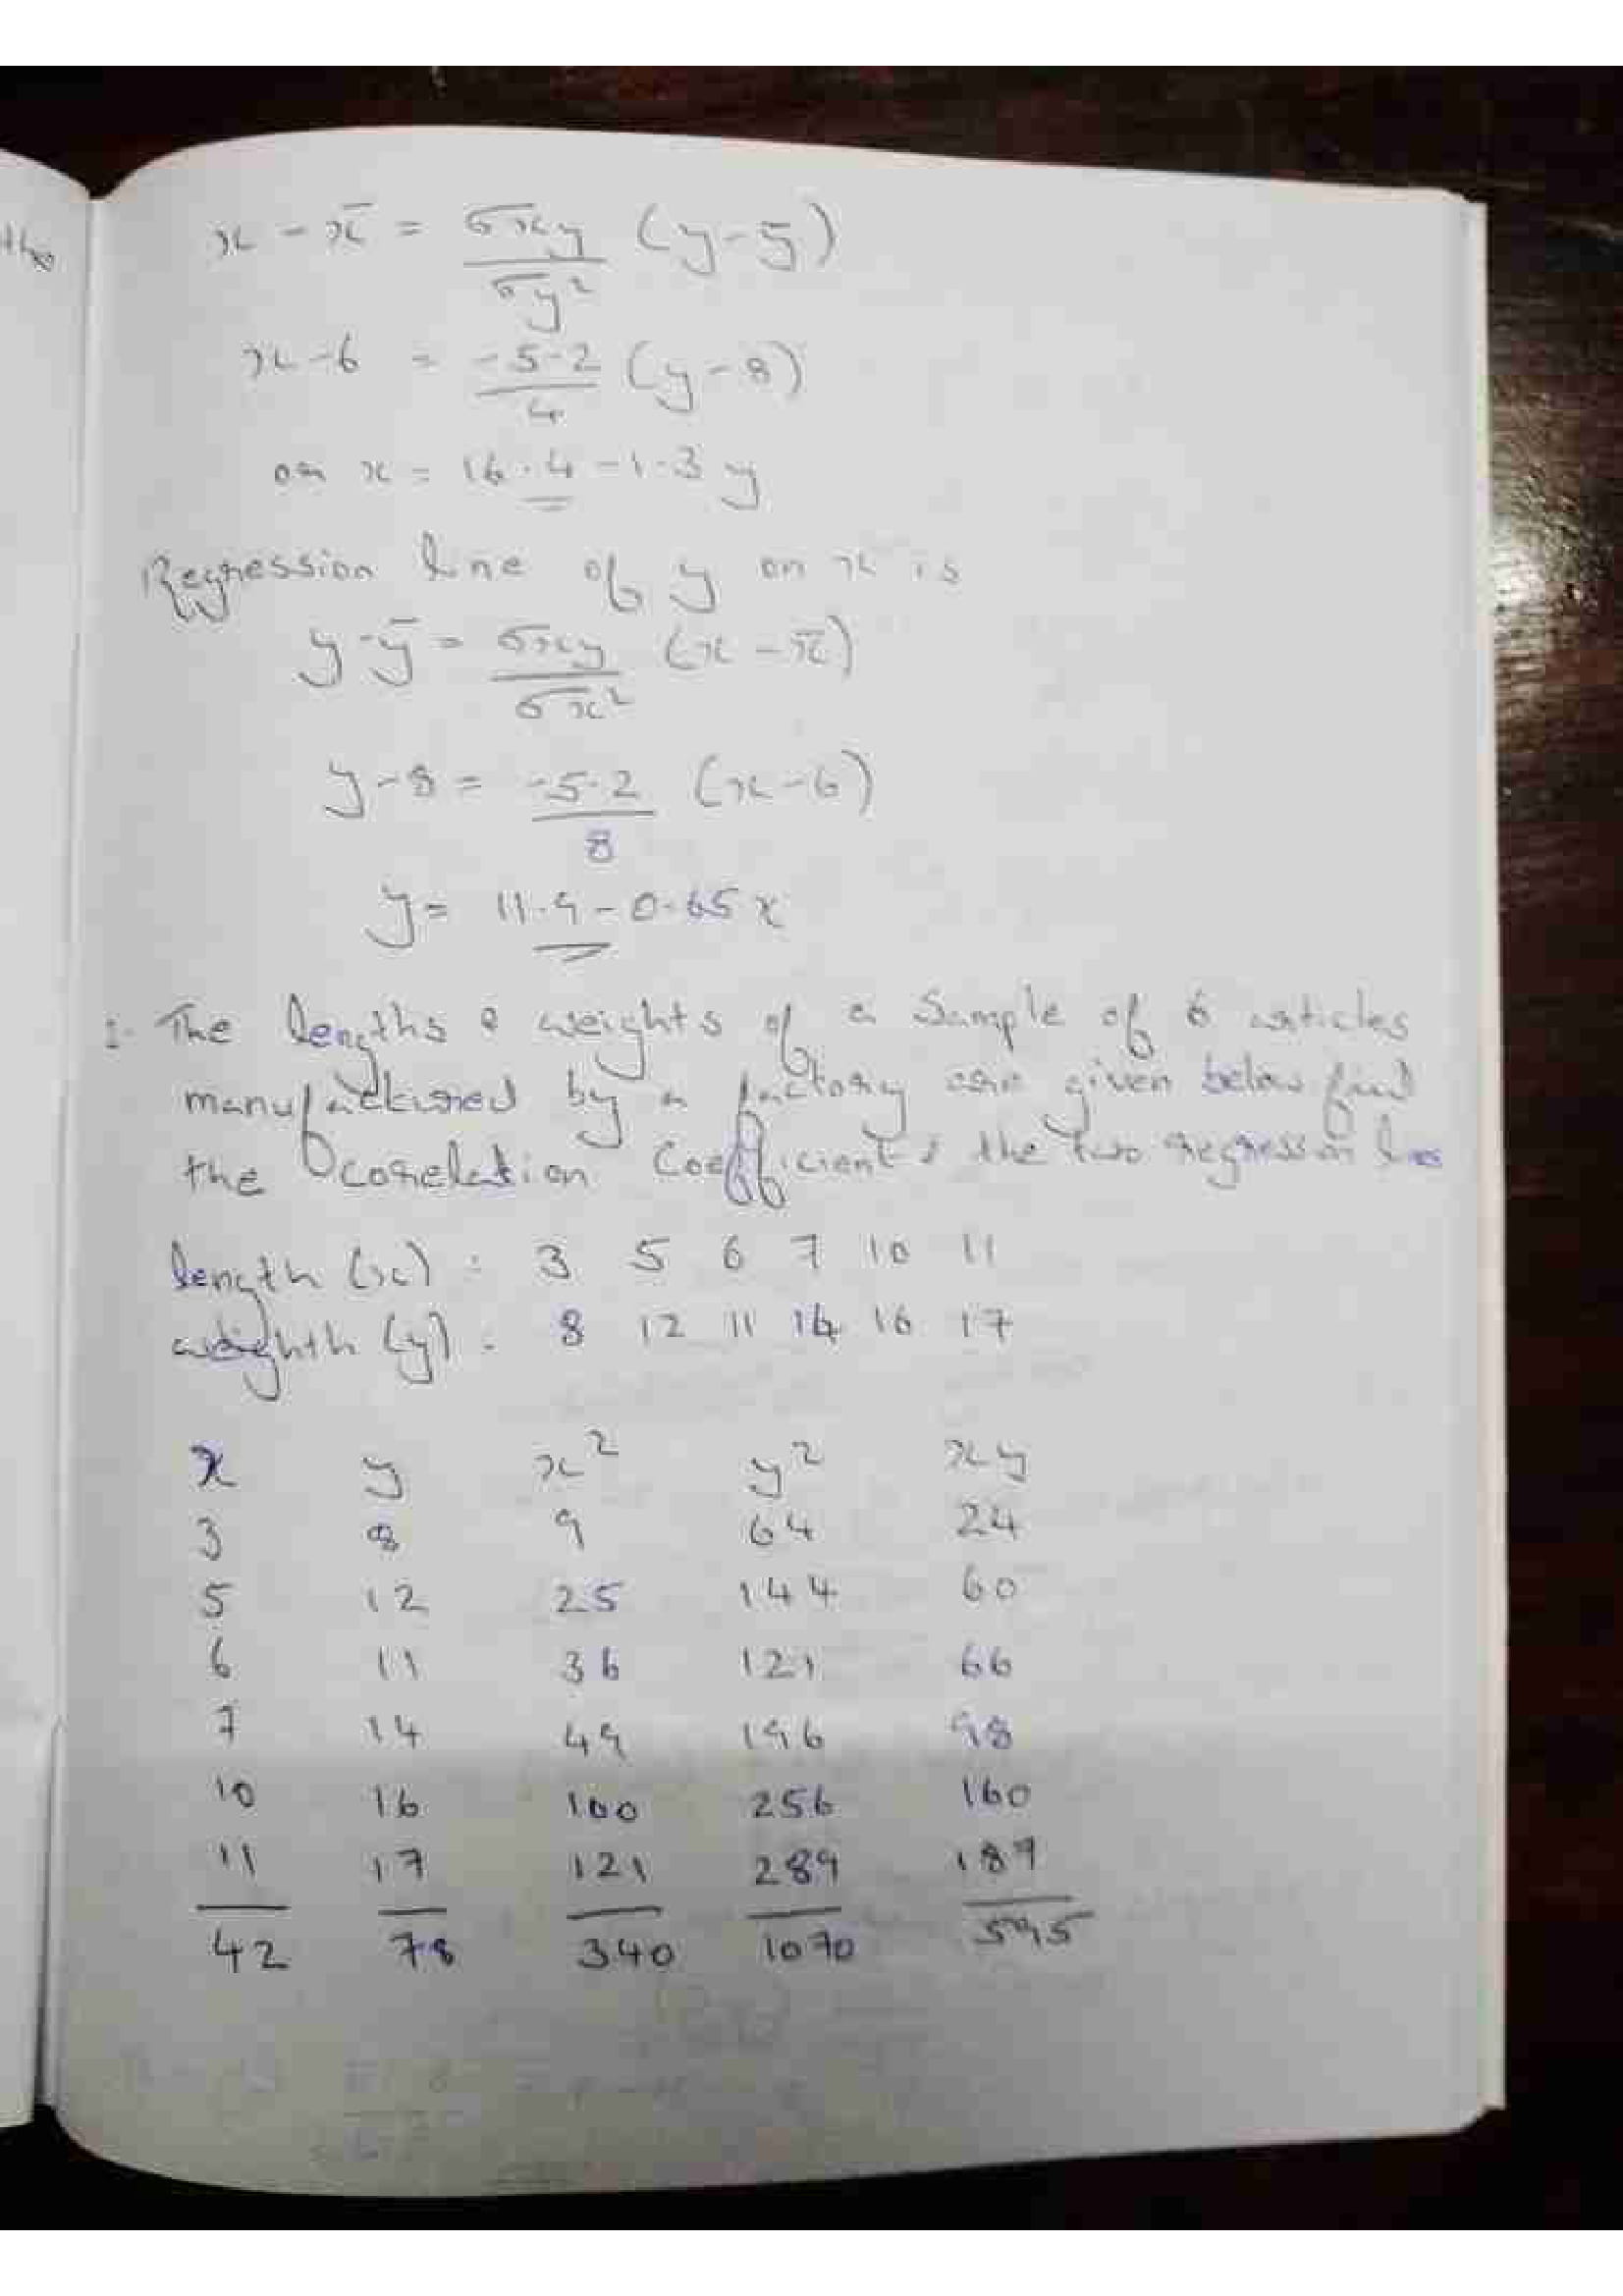 x - x̄ = σxy / σy² (y - ȳ)
x - 6 = -5.2 / 4 (y - 8)
or x = 16.4 - 1.3 y
Regression line of y on x is
y - ȳ = σxy / σx² (x - x̄)
y - 8 = -5.2 / 8 (x - 6)
y = 11.9 - 0.65 x
The lengths & weights of a Sample of 6 articles
manufactured by a factory are given below find
the corelation Coefficient & the two regression lines
length (x) : 3 5 6 7 10 11
weighth (y) : 8 12 11 14 16 17
x y x² y² xy
3 8 9 64 24
5 12 25 144 60
6 11 36 121 66
7 14 49 196 98
10 16 100 256 160
11 17 121 289 187
42 78 340 1070 595